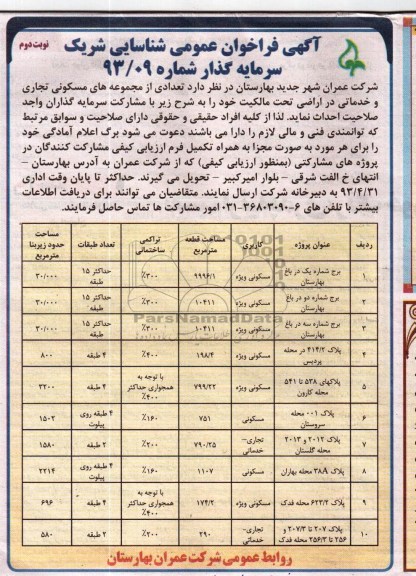 آگهی فراخوان عمومی شناسایی شریک
نوبت دوم
سرمایه گذار شماره ۹۳/۰۹
شرکت عمران شهر جدید بهارستان در نظر دارد تعدادی از مجموعه های مسکونی تجاری
و خدماتی در اراضی تحت مالکیت خود را به شرح زیر با مشارکت سرمایه گذاران واجد
صلاحیت احداث نماید. لذا از کلیه افراد حقیقی و حقوقی دارای صلاحیت و سوابق مرتبط
که توانمندی فنی و مالی لازم را دارا می باشند دعوت می شود برگ اعلام آمادگی خود
را برای هر مورد به صورت مجزا به همراه تکمیل فرم ارزیابی کیفی مشارکت کنندگان در
پروژه های مشارکتی (بمنظور ارزیابی کیفی) که از شرکت عمران به آدرس بهارستان -
انتهای خ الفت شرقی - بلوار امیرکبیر - تحویل می گیرند. حداکثر تا پایان وقت اداری
۹۳/۴/۳۱ به دبیرخانه شرکت ارسال نمایند. متقاضیان می توانند برای دریافت اطلاعات
بیشتر با تلفن های ۶-۰۳۱-۳۶۸۰۳۰۹۰ امور مشارکت ها تماس حاصل فرمایند.
ردیف عنوان پروژه کاربری مساحت قطعه مترمربع تراکمی ساختمانی تعداد طبقات مساحت حدود زیربنا مترمربع
۱ برج شماره یک در باغ بهارستان مسکونی ویژه ۹۹۹۶/۱ ٪۳۰۰ حداکثر ۱۵ طبقه ۳۰/۰۰۰
۲ برج شماره دو در باغ بهارستان مسکونی ویژه ۱۰۴۱۱ ٪۳۰۰ حداکثر ۱۵ طبقه ۳۰/۰۰۰
۳ برج شماره سه در باغ بهارستان مسکونی ویژه ۱۰۴۱۱ ٪۳۰۰ حداکثر ۱۵ طبقه ۳۰/۰۰۰
۴ پلاک ۴۱۴/۲ در محله پردیس مسکونی ویژه ۱۹۸/۴ ٪۴۰۰ ۴ طبقه ۸۰۰
۵ پلاکهای ۵۳۸ تا ۵۴۱ محله کارون مسکونی ویژه ۷۹۹/۲۲ با توجه به همجواری حداکثر ٪۴۰۰ ۴ طبقه ۳۲۰۰
۶ پلاک ۰۰۱ محله سروستان مسکونی ۷۵۱ ٪۱۶۰ ۴ طبقه روی پیلوت ۱۵۰۲
۷ پلاک ۲۰۱۲ و ۲۰۱۳ محله گلستان تجاری-خدماتی ۷۹۰/۲۵ ٪۲۰۰ ۲ طبقه ۱۵۸۰
۸ پلاک ۳۸A محله بهاران مسکونی ۱۱۰۷ ٪۱۶۰ ۴ طبقه روی پیلوت ۲۲۱۴
۹ پلاک ۶۲۳/۲ محله فدک مسکونی ویژه ۱۷۴/۲ با توجه به همجواری حداکثر ٪۴۰۰ ۴ طبقه ۶۹۶
۱۰ پلاک ۲۰۷ تا ۲۰۷/۳ و ۲۵۶ تا ۲۵۶/۳ محله فدک تجاری-خدماتی ۲۹۰ ٪۲۰۰ ۲ طبقه ۵۸۰
ParsNamadData
روابط عمومی شرکت عمران بهارستان